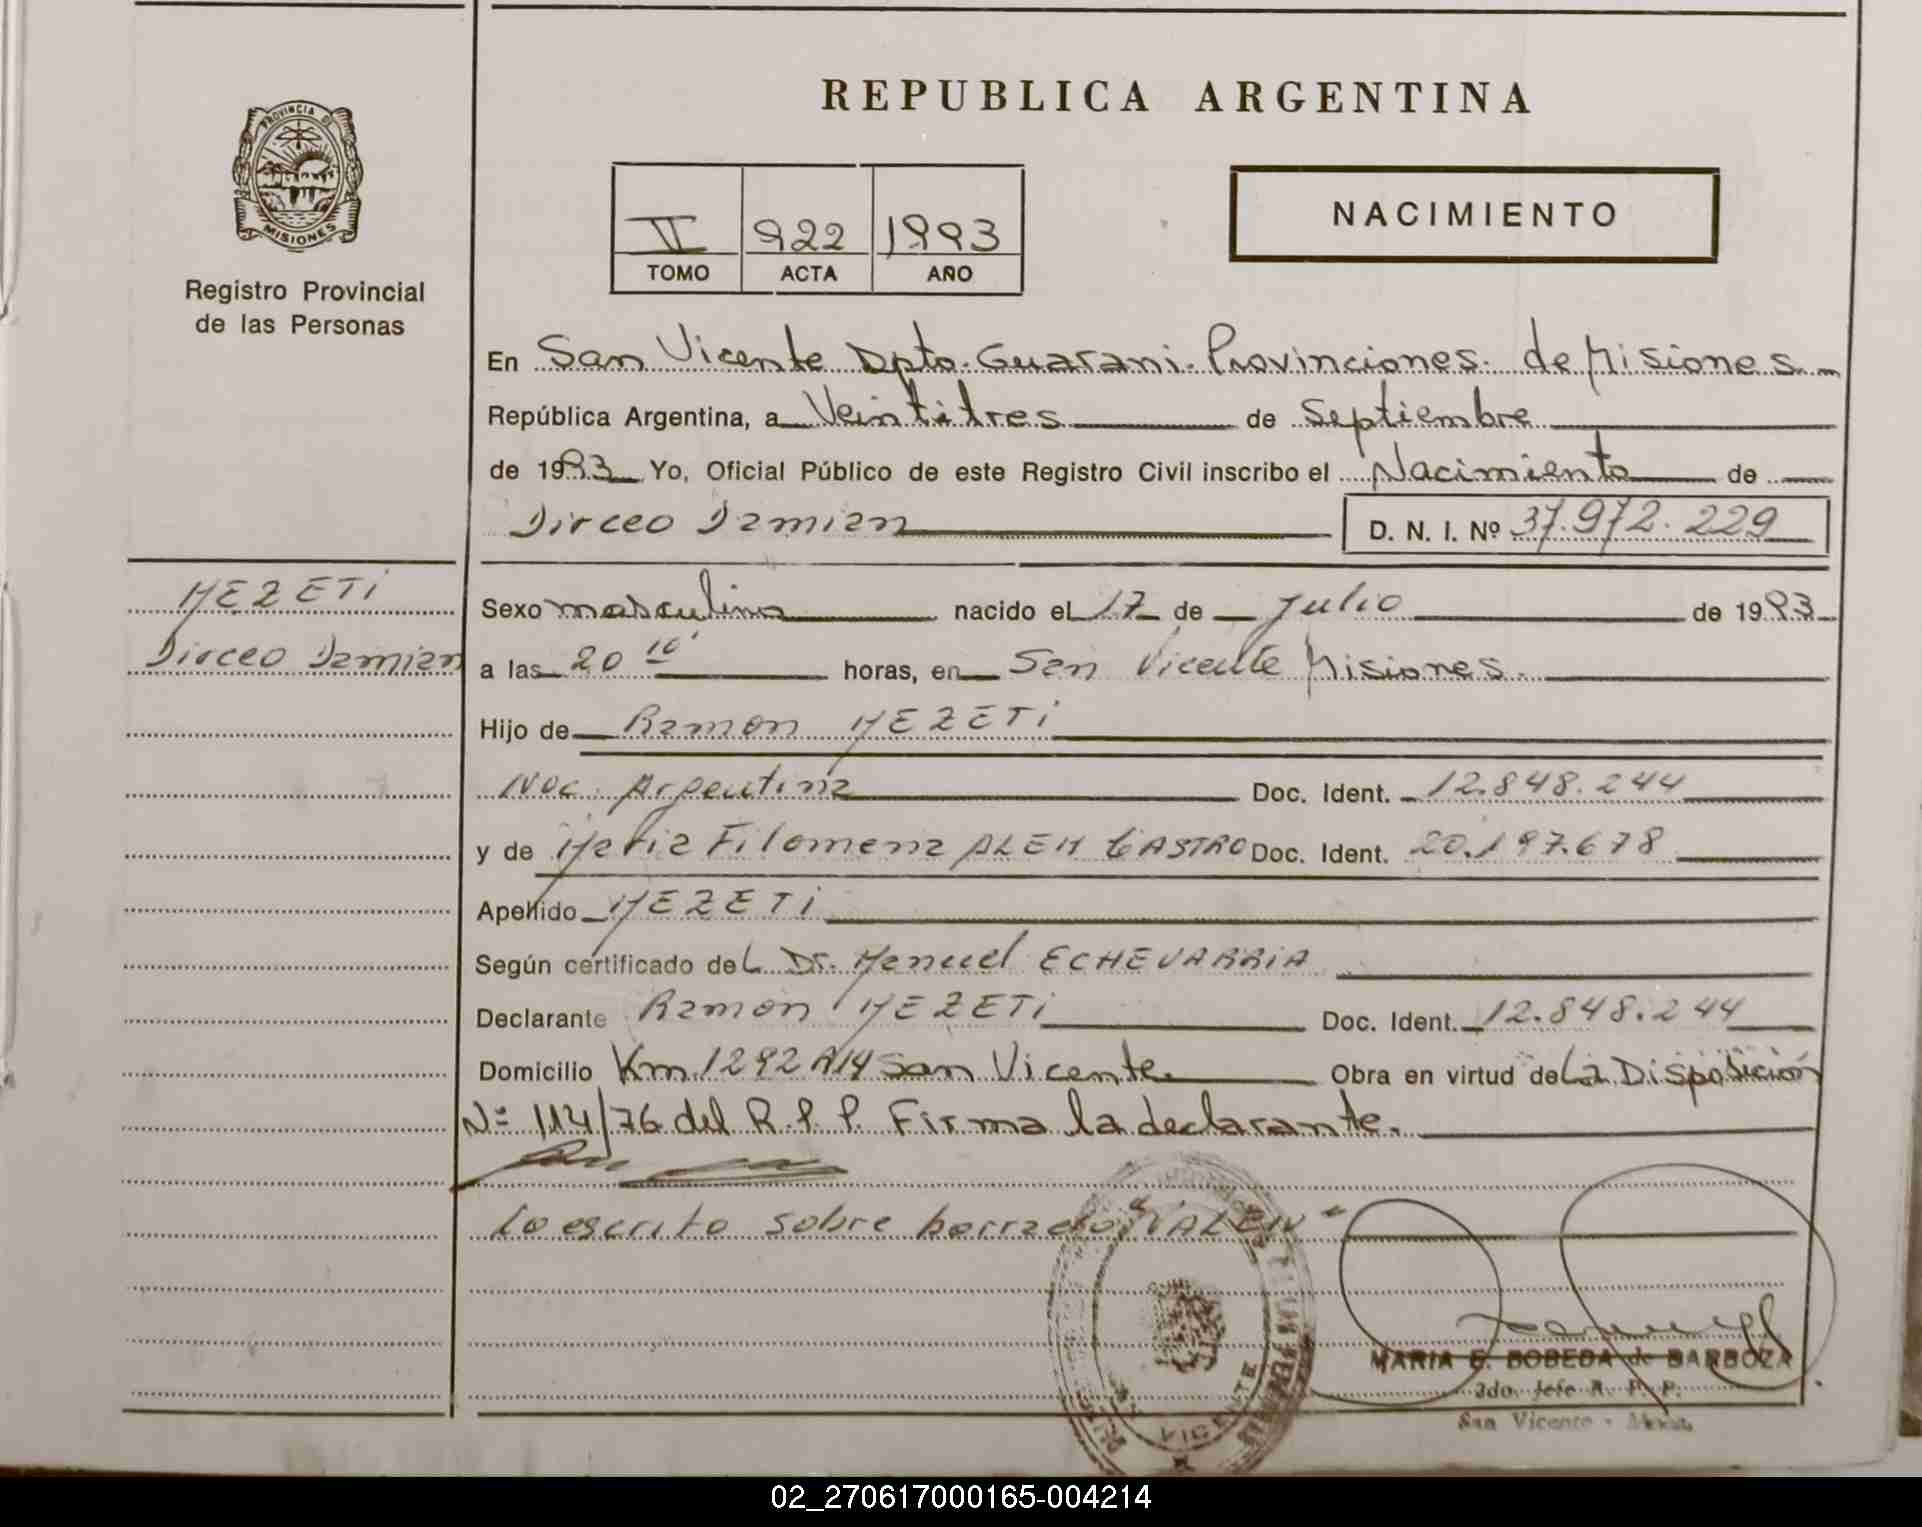 REPUBLICA ARGENTINA
PROVINCIA DE
MISIONES
Registro Provincial
de las Personas
V 922 1993
TOMO ACTA AÑO
NACIMIENTO
En San Vicente Dpto. Guarani. Provinciones. de Misiones.
República Argentina, a Veintitres de Septiembre
de 1993 Yo, Oficial Público de este Registro Civil inscribo el Nacimiento de
Dirceo Damian D. N. I. Nº 37.972.229
MEZETI
Dirceo Damian
Sexo masculino nacido el 17 de Julio de 1993
a las 20 10' horas, en San Vicente Misiones.
Hijo de Ramon MEZETI
Nac. Argentina Doc. Ident. 12.848.244
y de Maria Filomena ALEM CASTRO Doc. Ident. 20.197.678
Apellido MEZETI
Según certificado del Dr. Manuel ECHEVARRIA
Declarante Ramon MEZETI Doc. Ident. 12.848.244
Domicilio Km 1292 R14 San Vicente Obra en virtud de La Disposición
Nº 114/76 del R.P.P. Firma la declarante.
Lo escrito sobre borrado "VALEN"
VICENTE
MARIA E. BOBEDA de BARBOZA
2do. Jefe R. P. P.
San Vicente - Mnes.
02_270617000165-004214